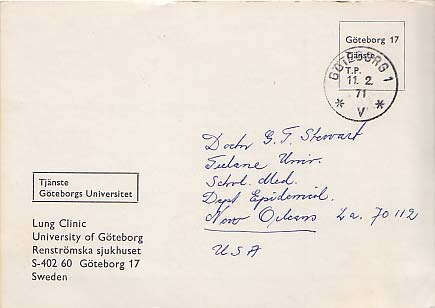 Göteborg 17
Tjänste
GÖTEBORG 1
T.P.
11. 2.
71
* V *
Doctor G. T. Stewart
Tulane Univ.
School. Med.
Dept Epidemiol.
New Orleans La. 70112
USA
Tjänste
Göteborgs Universitet
Lung Clinic
University of Göteborg
Renströmska sjukhuset
S-402 60 Göteborg 17
Sweden